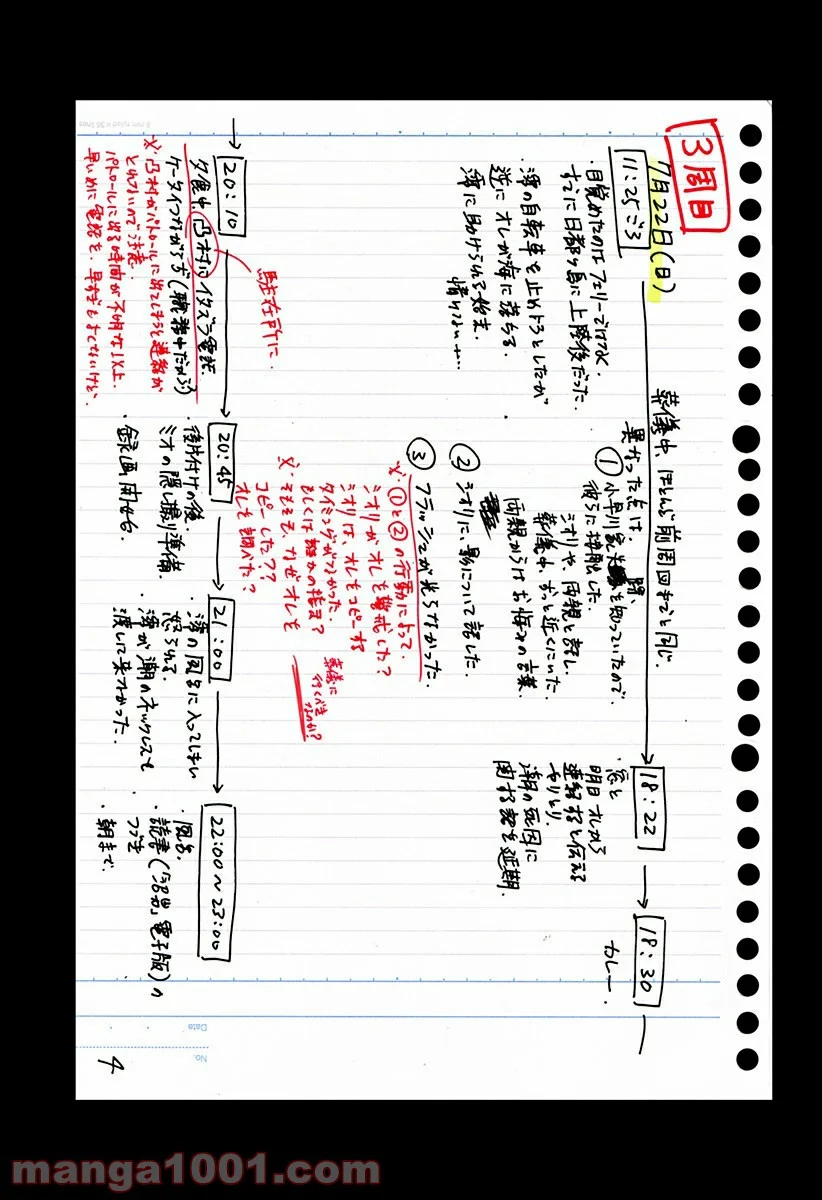 3周目
7月22日(日)
11:25ごろ
・目覚めたのはフェリーではなく、
すでに日都ヶ島に上陸後だった。
・澪の自転車を止めようとしたが
逆にオレが海に落ちる。
澪に助けられる始末。
情けない……
葬儀中、ほとんど前周回までと同じ。
異なった点は、
① 小早川
を知っていたので、
彼らに挨拶した。
シオリや両親と話し、
葬儀中、ずっと近くにいた。
両親からはお悔みの言葉。
② シオリに、影について話した。
③ フラッシュが光らなかった。
※・①と②の行動によって、
シオリがオレを警戒した?
シオリは、オレをコピーする
タイミングがなかった。
もしくは
かの指示?
※そもそも、なぜオレを
コピーした??
オレも
た?
葬儀に
行くべき
なのか?
18:22
・窓と
明日オレから
連絡すると伝える
やりとり。
・潮の死因に
関する
を延期。
18:30
カレー。
20:10
夕食中 凸村にイタズラ電話
ケータイつながらず(職務中だから)
駐在所に。
※・凸村がパトロールに出てしまうと連絡が
とれないので注意。
パトロールに出る時間が不明な以上、
早いめに電話を。早すぎもよくないけど。
20:45
・後片付けの後
ミオの隠し撮り準備。
・録画開始。
21:00
・澪の風呂に入ってしまい
怒られる。
・澪が潮のネックレスを
渡して来なかった。
22:00~23:00
・風呂。
・読書(
電子版)の
つづき
・朝まで。
Date
No.
4
manga1001.com